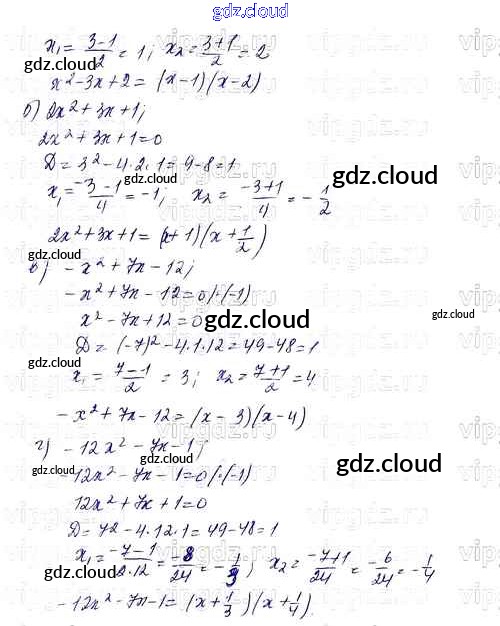 gdz.cloud
x₁ = (3-1)/2 = 1; x₂ = (3+1)/2 = 2
gdz.cloud
x²-3x+2 = (x-1)(x-2)
б) 2x²+3x+1;
2x²+3x+1=0
Д = 3²-4.2.1=9-8=1
gdz.cloud
x₁ = (-3-1)/4 = -1; x₂ = (-3+1)/4 = -1/2
2x²+3x+1 = (x+1)(x+1/2)
gdz.cloud
в) -x²+7x-12;
-x²+7x-12=0/·(-1)
x²-7x+12=0
gdz.cloud
gdz.cloud
Д = (-7)²-4.1.12=49-48=1
gdz.cloud
x₁ = (7-1)/2 = 3; x₂ = (7+1)/2 = 4
-x²+7x-12 = (x-3)(x-4)
г) -12x²-7x-1;
gdz.cloud
gdz.cloud
-12x²-7x-1=0/·(-1)
12x²+7x+1=0
Д = 7²-4.12.1=49-48=1
x₁ = (-7-1)/2.12 = -8/24 = -1/3; x₂ = (-7+1)/24 = -6/24 = -1/4
gdz.cloud
-12x²-7x-1 = (x+1/3)(x+1/4)
gdz.cloud